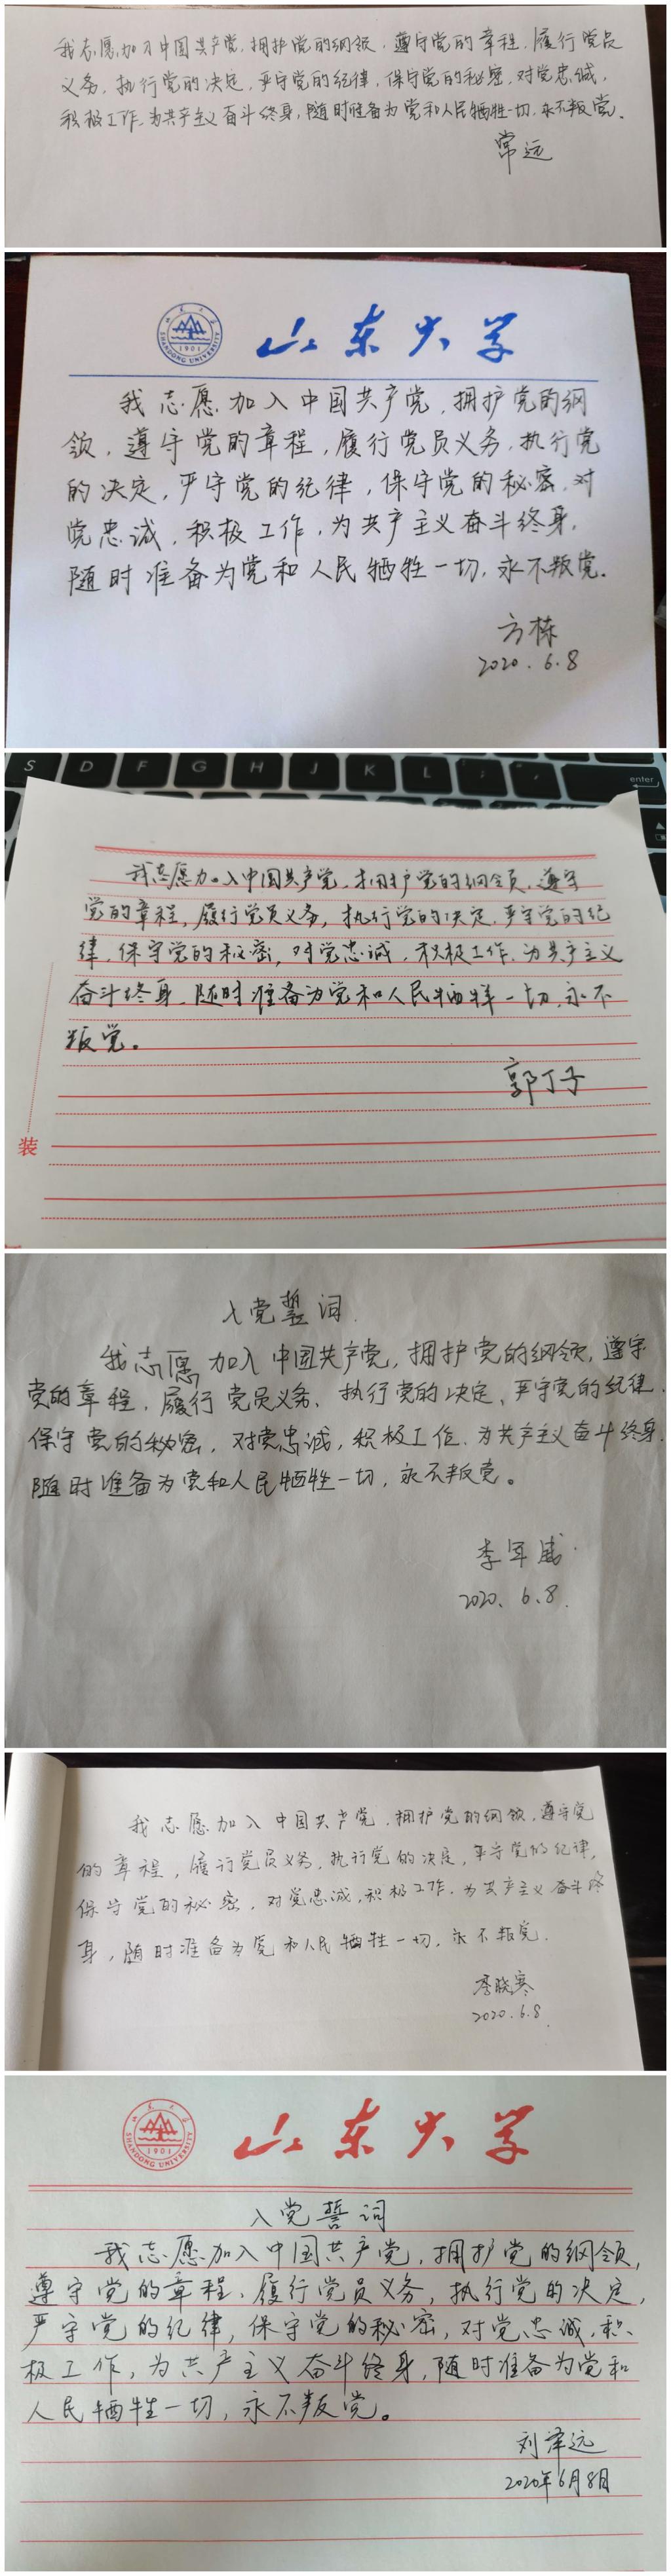 我志愿加入中国共产党，拥护党的纲领，遵守党的章程，履行党员
义务，执行党的决定，严守党的纪律，保守党的秘密，对党忠诚，
积极工作，为共产主义奋斗终身，随时准备为党和人民牺牲一切，永不叛党。
常远
山东大学
SHANDONG UNIVERSITY
1901
我志愿加入中国共产党，拥护党的纲
领，遵守党的章程，履行党员义务，执行党
的决定，严守党的纪律，保守党的秘密，对
党忠诚，积极工作，为共产主义奋斗终身，
随时准备为党和人民牺牲一切，永不叛党。
方栋
2020.6.8
S D F G H J K L ; '
enter
我志愿加入中国共产党，拥护党的纲领，遵守
党的章程，履行党员义务，执行党的决定，严守党的纪
律，保守党的秘密，对党忠诚，积极工作，为共产主义
奋斗终身，随时准备为党和人民牺牲一切，永不
叛党。
郭丁予
装
入党誓词
我志愿加入中国共产党，拥护党的纲领，遵守
党的章程，履行党员义务，执行党的决定，严守党的纪律，
保守党的秘密，对党忠诚，积极工作，为共产主义奋斗终身，
随时准备为党和人民牺牲一切，永不叛党。
李军
2020.6.8.
我志愿加入中国共产党，拥护党的纲领，遵守党
的章程，履行党员义务，执行党的决定，严守党的纪律，
保守党的秘密，对党忠诚，积极工作，为共产主义奋斗终
身，随时准备为党和人民牺牲一切，永不叛党．
李晓寒
2020.6.8
山东大学
SHANDONG UNIVERSITY
1901
入党誓词
我志愿加入中国共产党，拥护党的纲领，
遵守党的章程，履行党员义务，执行党的决定，
严守党的纪律，保守党的秘密，对党忠诚，积
极工作，为共产主义奋斗终身，随时准备为党和
人民牺牲一切，永不叛党。
刘泽远
2020年6月8日